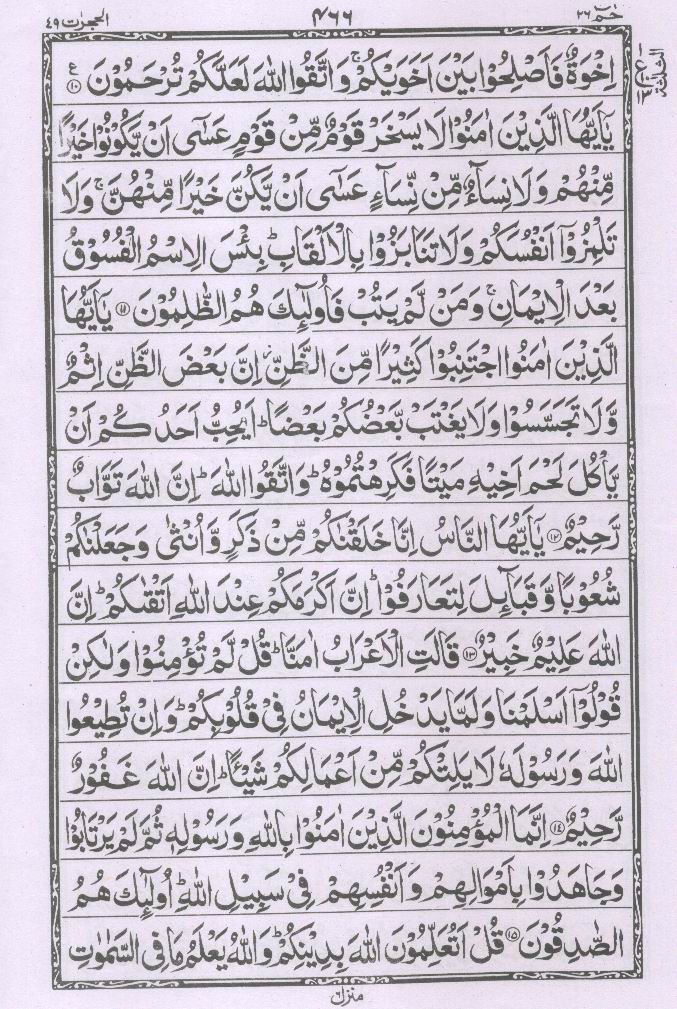 حٰمٓ ٢٦
٤٦٦
الحجرٰت ٤٩
اِخْوَةٌ فَاَصْلِحُوْا بَيْنَ اَخَوَيْكُمْ ۚ وَاتَّقُوا اللّٰهَ لَعَلَّكُمْ تُرْحَمُوْنَ ۧ ﴿١٠﴾
يٰٓاَيُّهَا الَّذِيْنَ اٰمَنُوْا لَا يَسْخَرْ قَوْمٌ مِّنْ قَوْمٍ عَسٰٓى اَنْ يَّكُوْنُوْا خَيْرًا
مِّنْهُمْ وَلَا نِسَآءٌ مِّنْ نِّسَآءٍ عَسٰٓى اَنْ يَّكُنَّ خَيْرًا مِّنْهُنَّ ۚ وَلَا
تَلْمِزُوْٓا اَنْفُسَكُمْ وَلَا تَنَابَزُوْا بِالْاَلْقَابِ ؕ بِئْسَ الِاسْمُ الْفُسُوْقُ
بَعْدَ الْاِيْمَانِ ۚ وَمَنْ لَّمْ يَتُبْ فَاُولٰٓئِكَ هُمُ الظّٰلِمُوْنَ ﴿١١﴾ يٰٓاَيُّهَا
الَّذِيْنَ اٰمَنُوا اجْتَنِبُوْا كَثِيْرًا مِّنَ الظَّنِّ ۫ اِنَّ بَعْضَ الظَّنِّ اِثْمٌ
وَّلَا تَجَسَّسُوْا وَلَا يَغْتَبْ بَّعْضُكُمْ بَعْضًا ؕ اَيُحِبُّ اَحَدُكُمْ اَنْ
يَّاْكُلَ لَحْمَ اَخِيْهِ مَيْتًا فَكَرِهْتُمُوْهُ ؕ وَاتَّقُوا اللّٰهَ ؕ اِنَّ اللّٰهَ تَوَّابٌ
رَّحِيْمٌ ﴿١٢﴾ يٰٓاَيُّهَا النَّاسُ اِنَّا خَلَقْنٰكُمْ مِّنْ ذَكَرٍ وَّاُنْثٰى وَجَعَلْنٰكُمْ
شُعُوْبًا وَّقَبَآئِلَ لِتَعَارَفُوْا ؕ اِنَّ اَكْرَمَكُمْ عِنْدَ اللّٰهِ اَتْقٰىكُمْ ؕ اِنَّ
اللّٰهَ عَلِيْمٌ خَبِيْرٌ ﴿١٣﴾ قَالَتِ الْاَعْرَابُ اٰمَنَّا ؕ قُلْ لَّمْ تُؤْمِنُوْا وَلٰكِنْ
قُوْلُوْٓا اَسْلَمْنَا وَلَمَّا يَدْخُلِ الْاِيْمَانُ فِيْ قُلُوْبِكُمْ ؕ وَاِنْ تُطِيْعُوا
اللّٰهَ وَرَسُوْلَهٗ لَا يَلِتْكُمْ مِّنْ اَعْمَالِكُمْ شَيْـًٔا ؕ اِنَّ اللّٰهَ غَفُوْرٌ
رَّحِيْمٌ ﴿١٤﴾ اِنَّمَا الْمُؤْمِنُوْنَ الَّذِيْنَ اٰمَنُوْا بِاللّٰهِ وَرَسُوْلِهٖ ثُمَّ لَمْ يَرْتَابُوْا
وَجَاهَدُوْا بِاَمْوَالِهِمْ وَاَنْفُسِهِمْ فِيْ سَبِيْلِ اللّٰهِ ؕ اُولٰٓئِكَ هُمُ
الصّٰدِقُوْنَ ﴿١٥﴾ قُلْ اَتُعَلِّمُوْنَ اللّٰهَ بِدِيْنِكُمْ ؕ وَاللّٰهُ يَعْلَمُ مَا فِي السَّمٰوٰتِ
منزل ٦